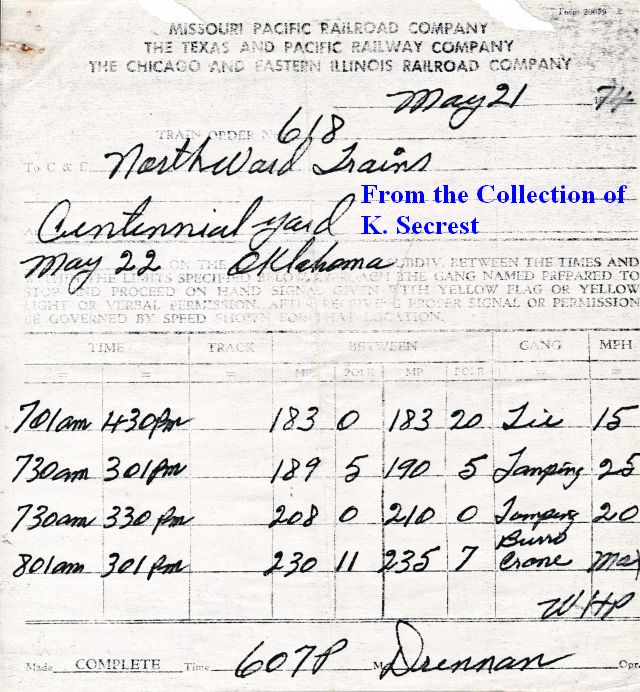 Form 20079
MISSOURI PACIFIC RAILROAD COMPANY
THE TEXAS AND PACIFIC RAILWAY COMPANY
THE CHICAGO AND EASTERN ILLINOIS RAILROAD COMPANY
May 21 1974
TRAIN ORDER No. 618
To C & E Northward Trains
From the Collection of
K. Secrest
Centennial yard
May 22 ON THE Oklahoma SUBDIV. BETWEEN THE TIMES AND
WITHIN THE LIMITS SPECIFIED THE GANG NAMED PREPARED TO
STOP AND PROCEED ON HAND SIGNAL GIVEN WITH YELLOW FLAG OR YELLOW
LIGHT OR VERBAL PERMISSION. AFTER RECEIVING PROPER SIGNAL OR PERMISSION
BE GOVERNED BY SPEED SHOWN FOR THAT LOCATION.
TIME TRACK BETWEEN GANG MPH
MP POLE MP POLE
701am 430pm 183 0 183 20 Tie 15
730am 301pm 189 5 190 5 Tamping 25
730am 330pm 208 0 210 0 Tamping 20
801am 301pm 230 11 235 7 Burro Crane Max
WHP
Made COMPLETE Time 607P M Drennan Opr.